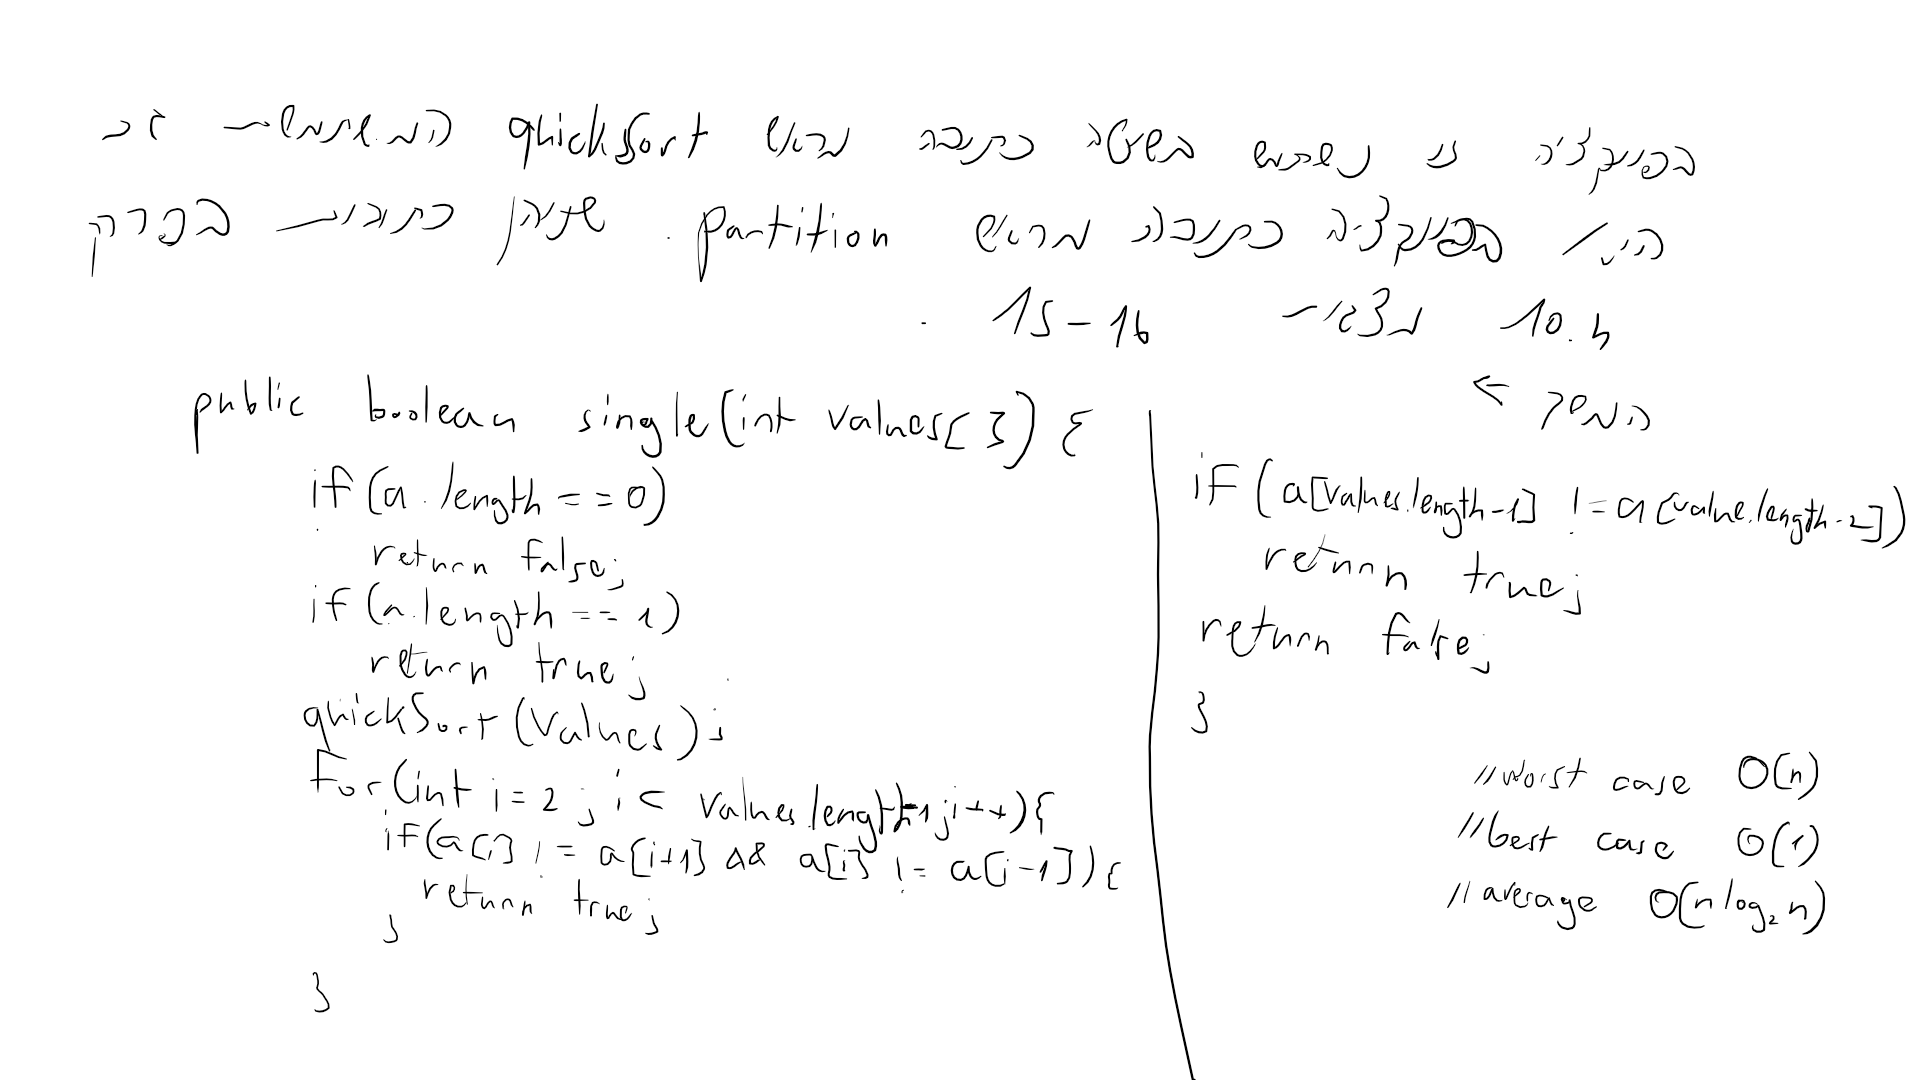 בפונקציה זו נשתמש בשיטה כתובה מראש quickSort המשתמשת גם
היא בפונקציה כתובה מראש partition. שתיהן כתובות בפרק
10.4 מצגות 15-16.
public boolean single(int values[]) {
if (a.length == 0)
return false;
if (a.length == 1)
return true;
quickSort(values);
for(int i=2; i< values.length-1; i++){
if(a[i] != a[i+1] && a[i] != a[i-1]){
return true;
}
}
המשך ←
if (a[values.length-1] != a[value.length-2])
return true;
return false;
}
//worst case O(n)
//best case O(1)
//average O(n log₂ n)